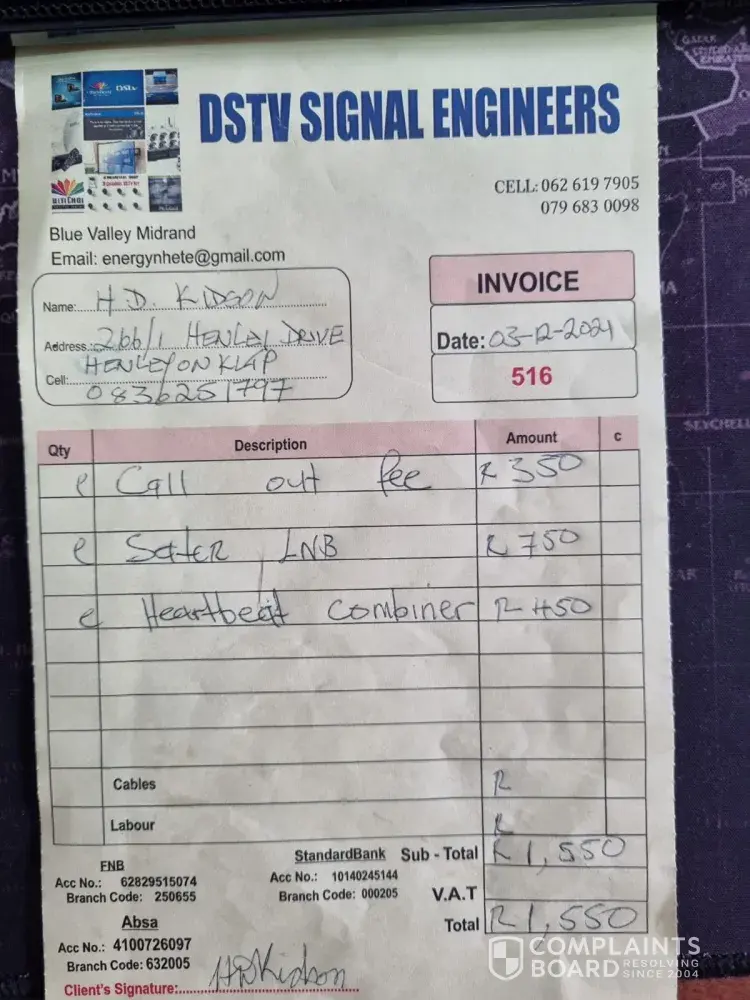 DSTV SIGNAL ENGINEERS
CELL: 062 619 7905
079 683 0098
Blue Valley Midrand
Email: energynhete@gmail.com
Name: H.D. KIDSON
Address: 266/1 HENLEY DRIVE
HENLEY ON KLIP
Cell: 0836251797
INVOICE
Date: 03-12-2021
516
Qty Description Amount c
Call out fee R 350
LNB R 750
Heartbeat combiner R 450
Cables R
Labour R
FNB
Acc No.: 62829515074
Branch Code: 250655
StandardBank
Acc No.: 10140245144
Branch Code: 000205
Sub - Total R 1,550
V.A.T
Total R 1,550
Absa
Acc No.: 4100726097
Branch Code: 632005
Client's Signature: HDKidson
COMPLAINTS
BOARD RESOLVING
SINCE 2004